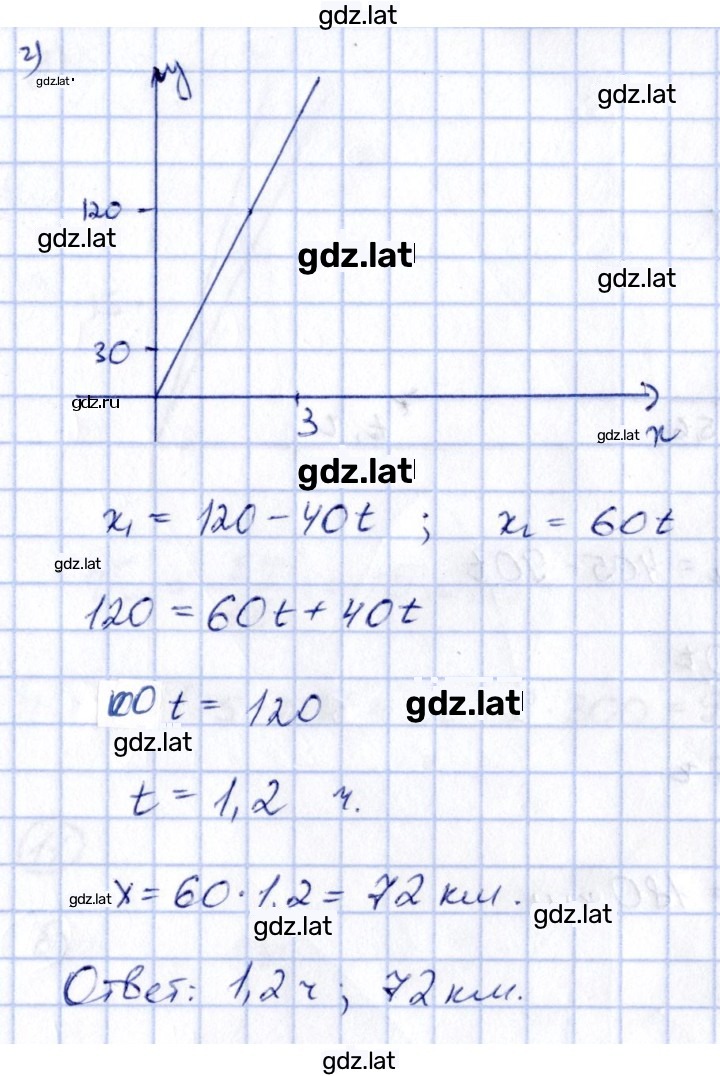 gdz.lat
г)
gdz.lat
y
gdz.lat
120
gdz.lat
gdz.lat
gdz.lat
30
gdz.ru
3
gdz.lat x
gdz.lat
x₁ = 120 - 40t ; x₂ = 60t
gdz.lat
120 = 60t + 40t
100 t = 120
gdz.lat
gdz.lat
t = 1,2 ч.
gdz.lat x = 60 · 1.2 = 72 км.
gdz.lat
gdz.lat
Ответ: 1,2 ч ; 72 км.
gdz.lat